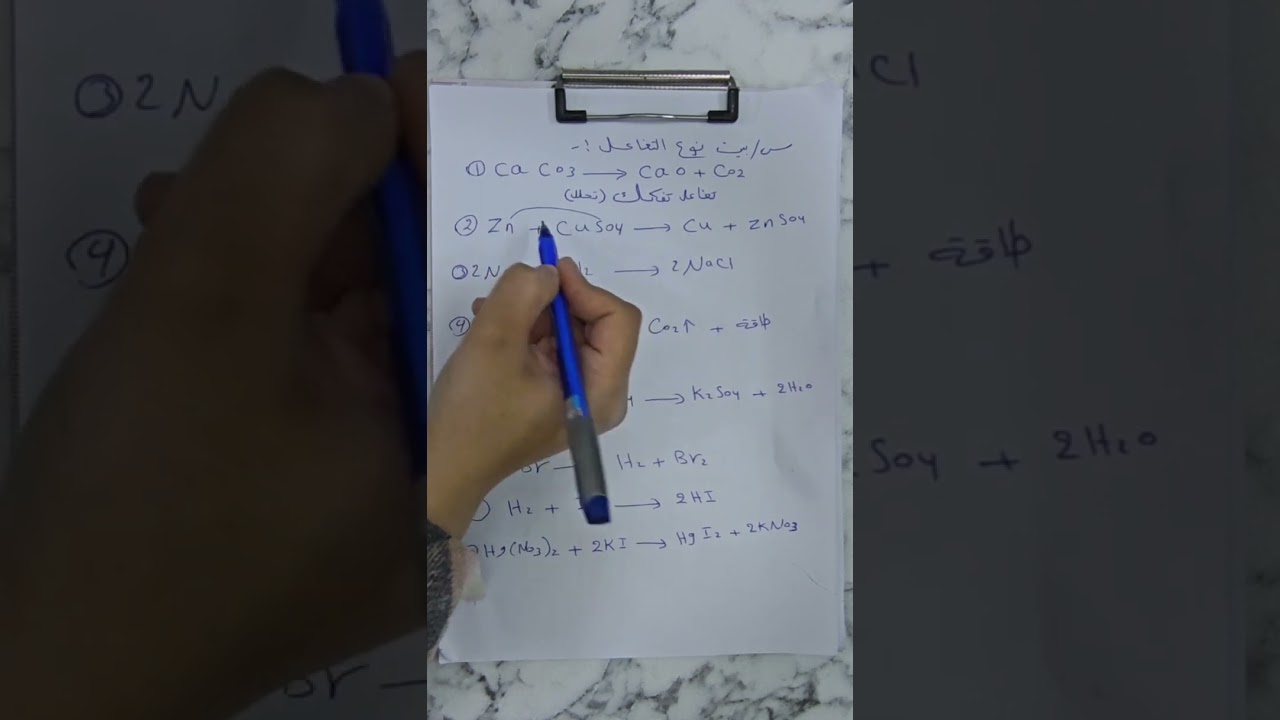 س/ بيت نوع التفاعل :-
① Ca Co3 → Ca O + Co2
تفاعل تفكك (تحلل)
② Zn + CuSO4 → Cu + ZnSO4
③ 2N l2 → 2NaCl
④ Co2↑ + طاقة
→ K2SO4 + 2H2O
Br — H2 + Br2
H2 + I → 2HI
Hg(No3)2 + 2KI → HgI2 + 2KNo3